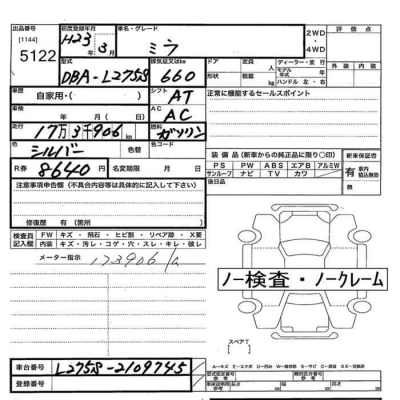 出品番号 初度登録年月 車名・グレード 評価点
[1144] H23年 3月 ミラ 2WD・4WD
5122 外装 内装
型式 排気量又はkw ドア 定員 ディーラー・並行
DBA-L275S 660 形状 積載 モデル年式
ハンドル 左・右
車歴 自家用・( ) シフト AT 正常に機能するセールスポイント
車検 年 月( 日) AC AC
走行 17万3千906km 燃料 ガソリン
色 シルバー 色替 装備品(新車からの純正品に限り○印) 新車保証書
R券 8640円 名変期限 月 日 PS PW ABS エアB アルミW 有
サンルーフ ナビ TV カワ
注意事項申告欄(不具合内容等は具体的に記入して下さい) 後日品
修復歴 有(箇所
検査員記入欄 FW キズ・飛石・ヒビ割・リペア跡・X要
内装 キズ・汚レ・コゲ・穴・スレ・キレ・破レ
メーター指示 173906㎞
ノー検査・ノークレーム
スペアT
車台番号 L275S-2109745
登録番号